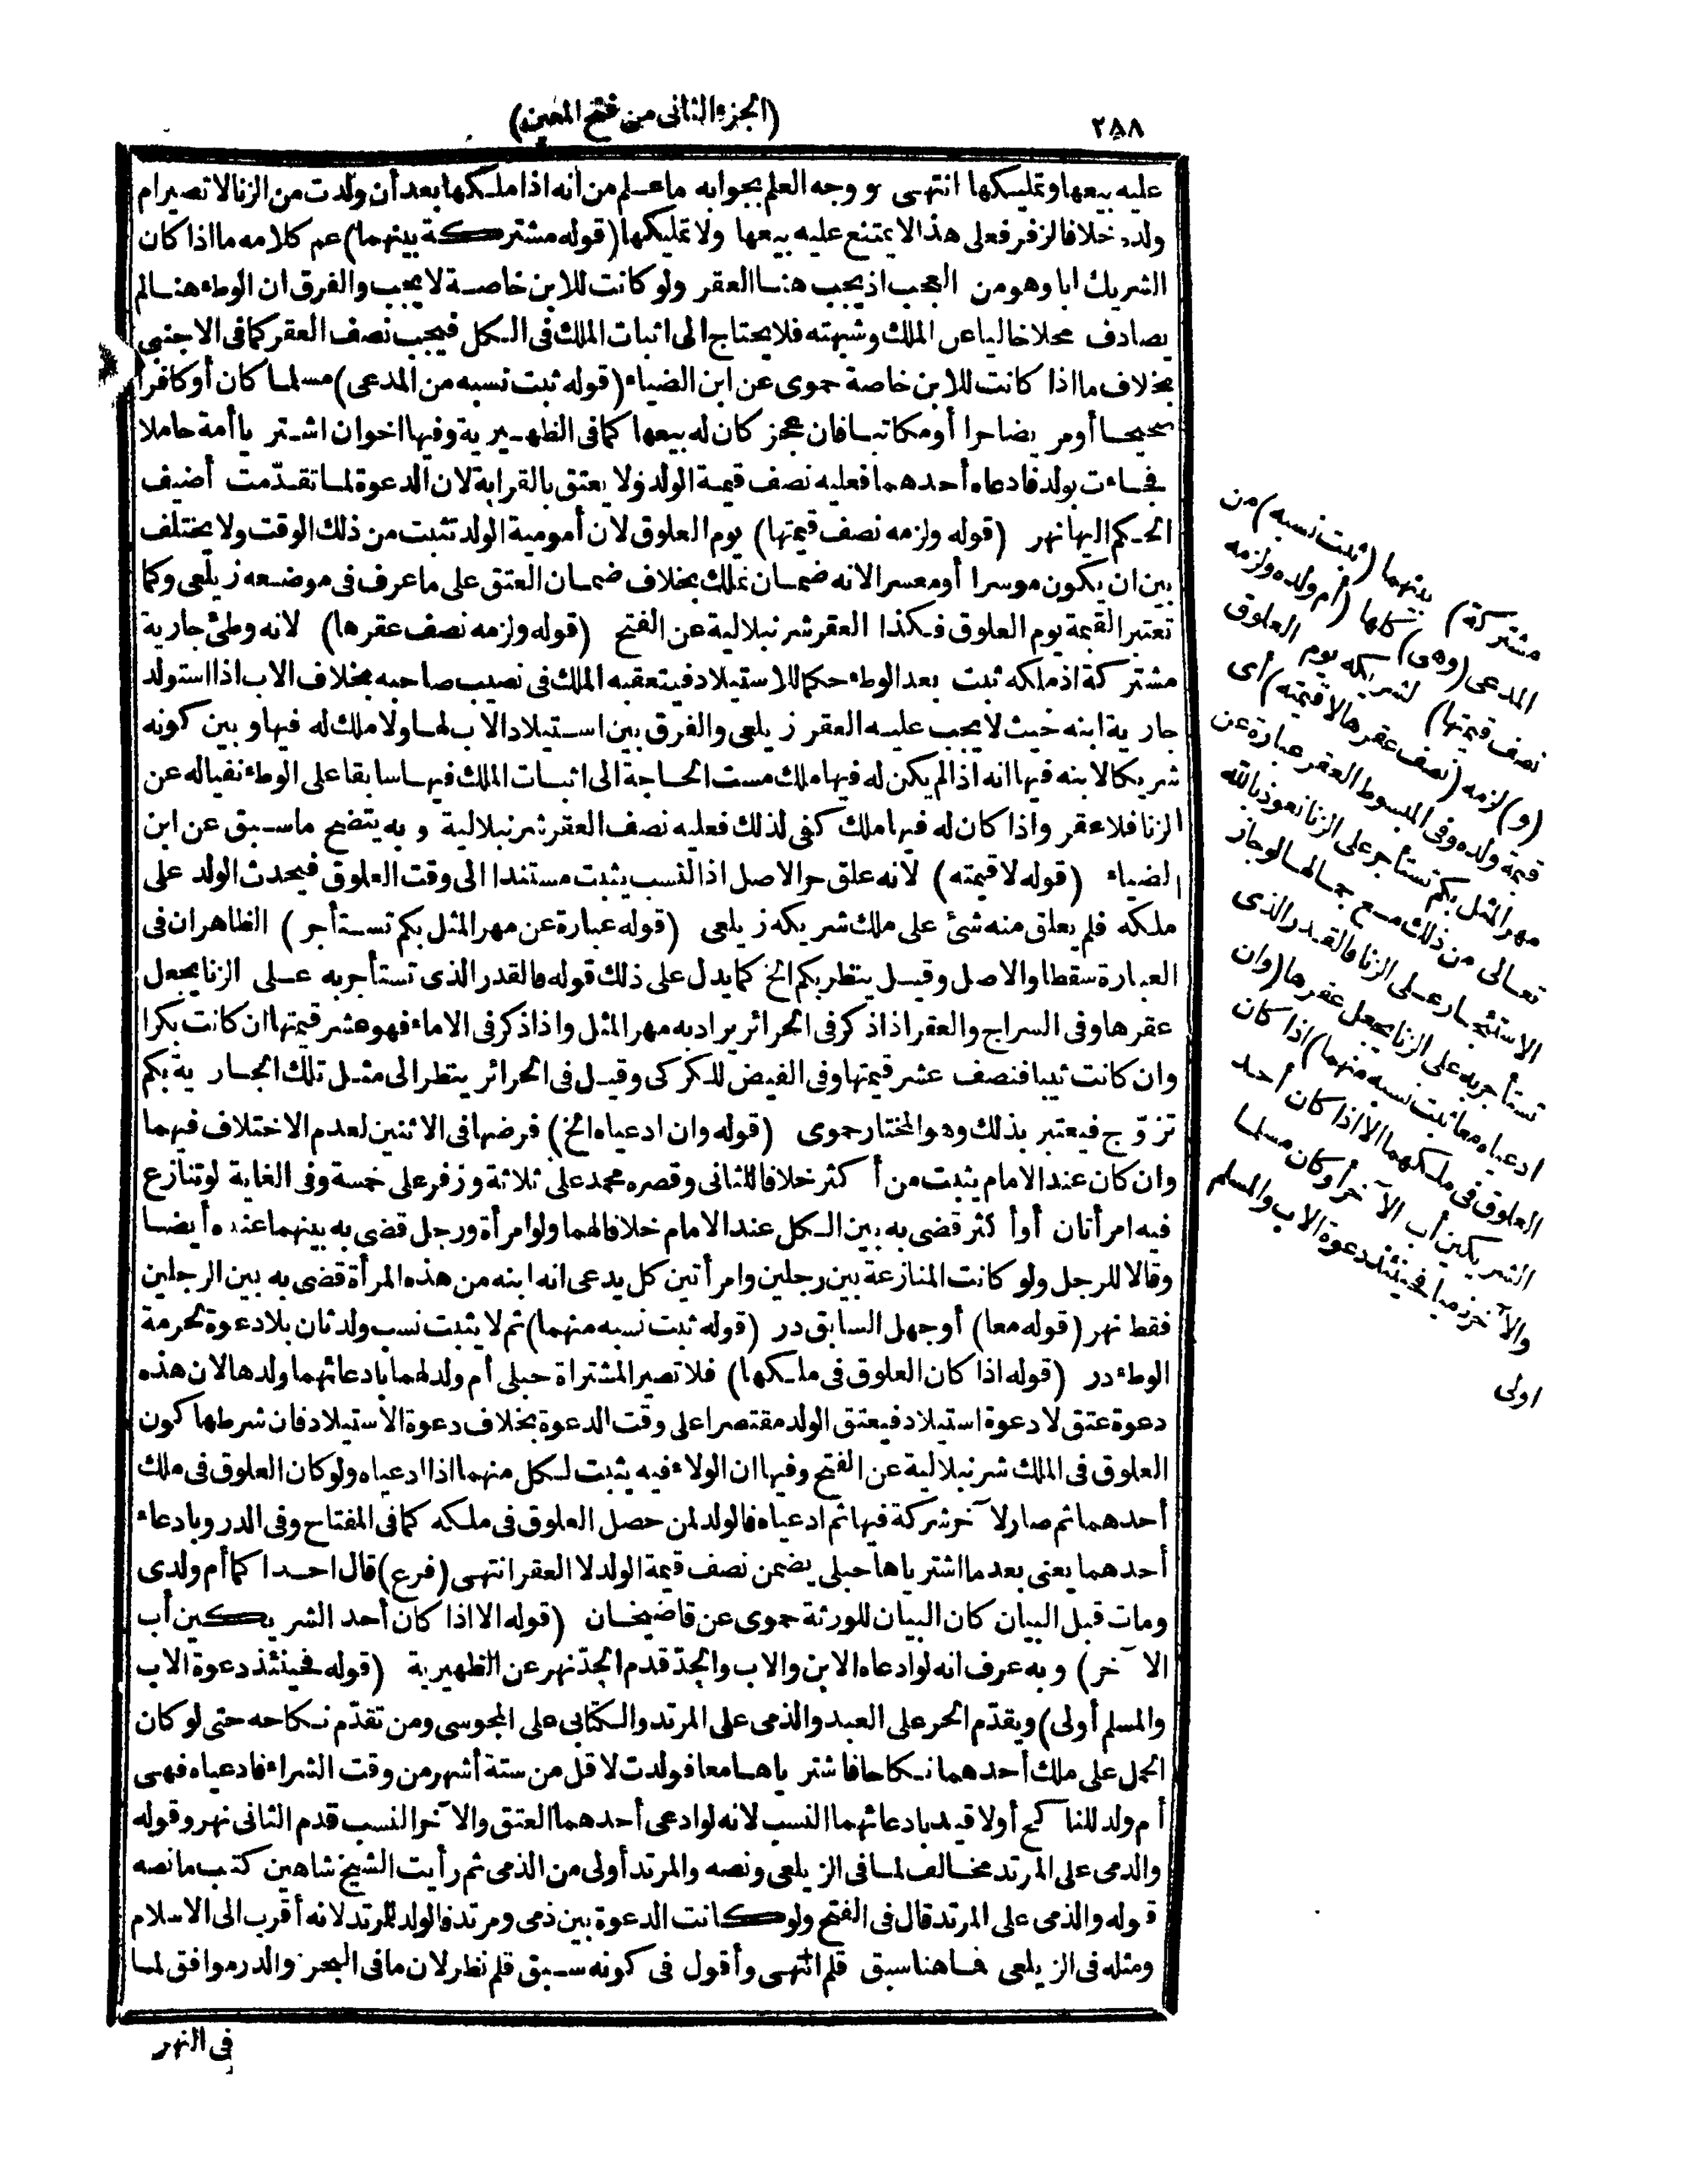 ٢٨٨
(الجزء الثانى من فتح المعين)
عليه بيعها وتمليكها انتهى ووجه العلم بجوابه ما علم من أنه اذا ملكها بعد أن ولدت من الزنا لا تصير ام
ولده خلافا لزفر فعلى هذا لا يمتنع عليه بيعها ولا تمليكها (قوله مشتركة بينهما) عم كلامه ما اذا كان
الشريك ابا وهو من العجب اذ يجب هنا العقر ولو كانت للابن خاصة لا يجب والفرق ان الوطء هنا لم
يصادف محلا خاليا عن الملك وشبهته فلا يحتاج الى اثبات الملك فى الكل فيجب نصف العقر كما فى الاجنبى
بخلاف ما اذا كانت للابن خاصة حموى عن ابن الضياء (قوله ثبت نسبه من المدعى) مسلما كان أو كافرا
صحيحا أو مريضا حرا أو مكاتبا فان عجز كان له بيعها كما فى الظهيرية وفيها اخوان اشتريا أمة حاملا
فجاءت بولد فادعاه أحدهما فعليه نصف قيمة الولد ولا يعتق بالقرابة لان الدعوة لما تقدّمت أضيف
الحكم اليها نهر (قوله ولزمه نصف قيمتها) يوم العلوق لان أمومية الولد تثبت من ذلك الوقت ولا يختلف
بين ان يكون موسرا أو معسرا لانه ضمان تملك بخلاف ضمان العتق على ما عرف فى موضعه زيلعى وكما
تعتبر القيمة يوم العلوق فكذا العقر شرنبلالية عن الفتح (قوله ولزمه نصف عقرها) لانه وطئ جارية
مشتركة اذ ملكه ثبت بعد الوطء حكما للاستيلاد فيتعقبه الملك فى نصيب صاحبه بخلاف الاب اذا استولد
جارية ابنه حيث لا يجب عليه العقر زيلعى والفرق بين استيلاد الاب لها ولا ملك له فيها وبين كونه
شريكا لابنه فيها انه اذا لم يكن له فيها ملك مست الحاجة الى اثبات الملك فيها سابقا على الوطء نفيا له عن
الزنا فلا عقر واذا كان له فيها ملك كفى لذلك فعليه نصف العقر شرنبلالية وبه يتضح ما سبق عن ابن
الضياء (قوله لا قيمته) لانه علق حر الاصل اذ النسب يثبت مستندا الى وقت العلوق فيحدث الولد على
ملكه فلم يعلق منه شئ على ملك شريكه زيلعى (قوله عبارة عن مهر المثل بكم تستأجر) الظاهر ان فى
العبارة سقطا والاصل وقيل ينظر بكم الخ كما يدل على ذلك قوله فالقدر الذى تستأجر به على الزنا يجعل
عقرها وفى السراج والعقر اذا ذكر فى الحرائر يراد به مهر المثل واذا ذكر فى الاماء فهو عشر قيمتها ان كانت بكرا
وان كانت ثيبا فنصف عشر قيمتها وفى الفيض للكركى وقيل فى الحرائر ينظر الى مثل تلك الجارية بكم
تزوّج فيعتبر بذلك وهو المختار حموى (قوله وان ادعياه الخ) فرضها فى الاثنين لعدم الاختلاف فيهما
وان كان عند الامام يثبت من أكثر خلافا للثانى وقصره محمد على ثلاثة وزفر على خمسة وفى الغاية لو تنازع
فيه امرأتان أو أكثر قضى به بين الكل عند الامام خلافا لهما ولو امرأة ورجل قضى به بينهما عنده أيضا
وقالا للرجل ولو كانت المنازعة بين رجلين وامرأتين كل يدعى انه ابنه من هذه المرأة قضى به بين الرجلين
فقط نهر (قوله معا) أو جهل السابق در (قوله ثبت نسبه منهما) ثم لا يثبت نسب ولد ثان بلا دعوة لحرمة
الوطء در (قوله اذا كان العلوق فى ملكها) فلا تصير المشتراة حبلى أم ولد لهما بادعائهما ولدها لان هذه
دعوة عتق لا دعوة استيلاد فيعتق الولد مقتصرا على وقت الدعوة بخلاف دعوة الاستيلاد فان شرطها كون
العلوق فى الملك شرنبلالية عن الفتح وفيها ان الولاء فيه يثبت لكل منهما اذا ادعياه ولو كان العلوق فى ملك
أحدهما ثم صار للآخر شركة فيها ثم ادعياه فالولد لمن حصل العلوق فى ملكه كما فى المفتاح وفى الدر وبادعاء
أحدهما يعنى بعد ما اشترياها حبلى يضمن نصف قيمة الولد لا العقر انتهى (فرع) قال احداكما أم ولدى
ومات قبل البيان كان البيان للورثة حموى عن قاضيخان (قوله الا اذا كان أحد الشريكين أب
الآخر) وبه عرف انه لو ادعاه الابن والاب والجدّ قدم الجدّ نهر عن الظهيرية (قوله فحينئذ دعوة الاب
والمسلم أولى) ويقدّم الحر على العبد والذمى على المرتد والكتابى على المجوسى ومن تقدّم نكاحه حتى لو كان
الحمل على ملك أحدهما نكاحا فاشترياها معا فولدت لاقل من ستة أشهر من وقت الشراء فادعياه فهى
أم ولد للناكح أولا قيد بادعائهما النسب لانه لو ادعى أحدهما العتق والآخر النسب قدم الثانى نهر وقوله
والذمى على المرتد مخالف لما فى الزيلعى ونصه والمرتد أولى من الذمى ثم رأيت الشيخ شاهين كتب ما نصه
قوله والذمى على المرتد قال فى الفتح ولو كانت الدعوة بين ذمى ومرتد فالولد للمرتد لانه أقرب الى الاسلام
ومثله فى الزيلعى فما هنا سبق قلم انتهى وأقول فى كونه سبق قلم نظر لان ما فى البحر والدر موافق لما
فى النهر
مشتركة) بينهما (ثبت نسبه) من
المدعى (وهى) كلها (أم ولده ولزمه
نصف قيمتها) لشريكه يوم العلوق
(و) لزمه (نصف عقرها لا قيمته) أى
قيمة ولده وفى المبسوط العقر عبارة عن
مهر المثل بكم تستأجر على الزنا نعوذ بالله
تعالى من ذلك مع جمالها لو جاز
الاستئجار على الزنا فالقدر الذى
تستأجر به على الزنا يجعل عقرها (وان
ادعياه معا ثبت نسبه منهما) اذا كان
العلوق فى ملكهما الا اذا كان أحد
الشريكين أب الآخر أو كان مسلما
والآخر ذميا فحينئذ دعوة الاب والمسلم
اولى